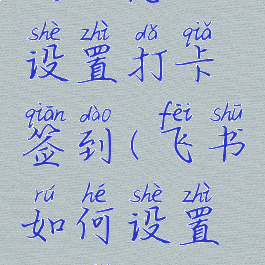 shè zhì dǎ qiǎ
设置打卡
qiān dào fēi shū
签到(飞书
rú hé shè zhì
如何设置